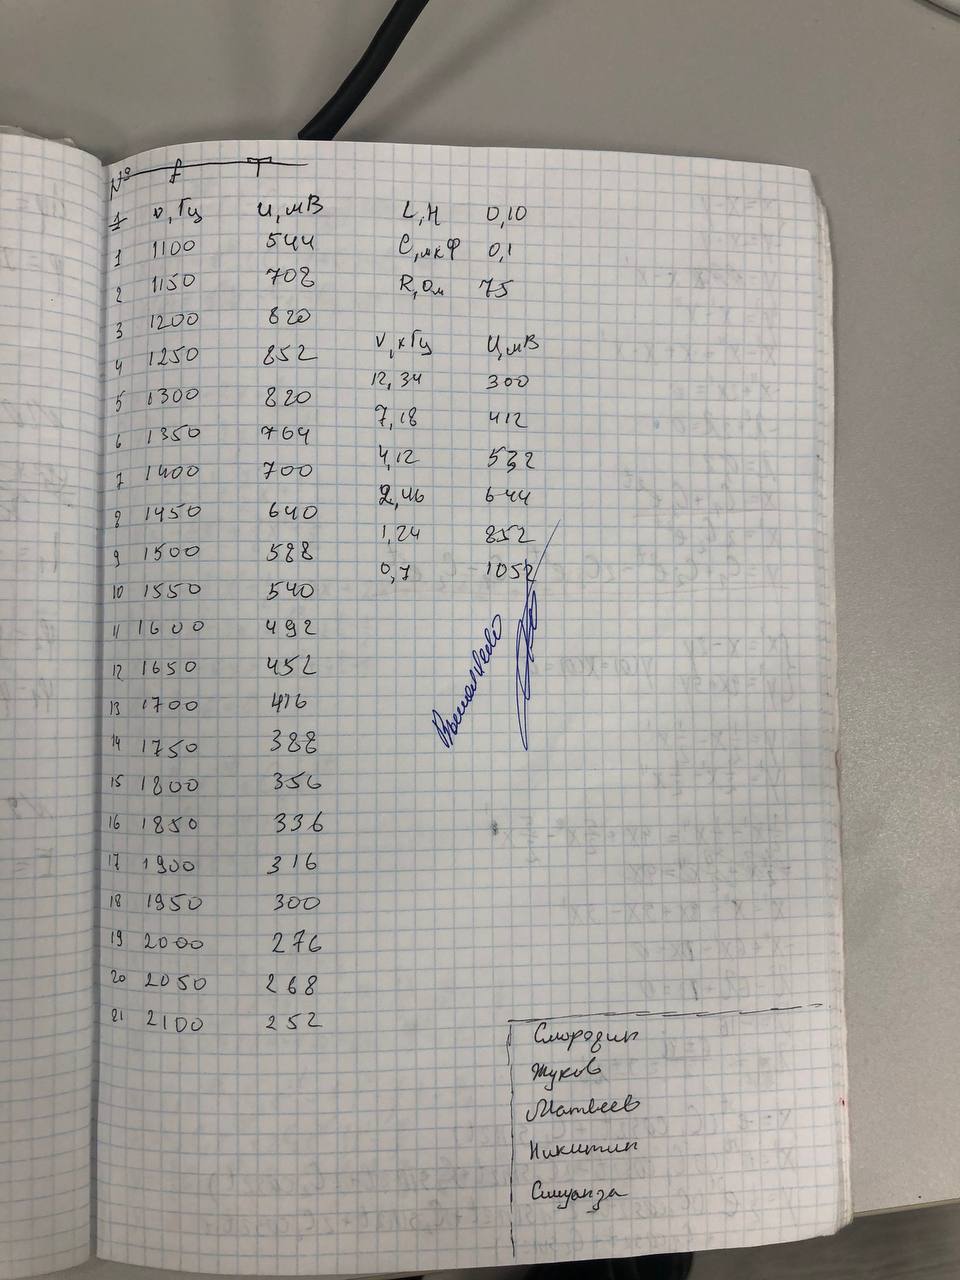 № f
1 ν, Гц U, мВ
1 1100 544
2 1150 708
3 1200 820
4 1250 852
5 1300 820
6 1350 764
7 1400 700
8 1450 640
9 1500 588
10 1550 540
11 1600 492
12 1650 452
13 1700 416
14 1750 388
15 1800 356
16 1850 336
17 1900 316
18 1950 300
19 2000 276
20 2050 268
21 2100 252
L, Н 0,10
C, мкФ 0,1
R, Ом 75
ν, кГц U, мВ
12,34 300
7,18 412
4,12 532
2,46 644
1,24 852
0,7 1052
Смородин
Жуков
Матвеев
Никитин